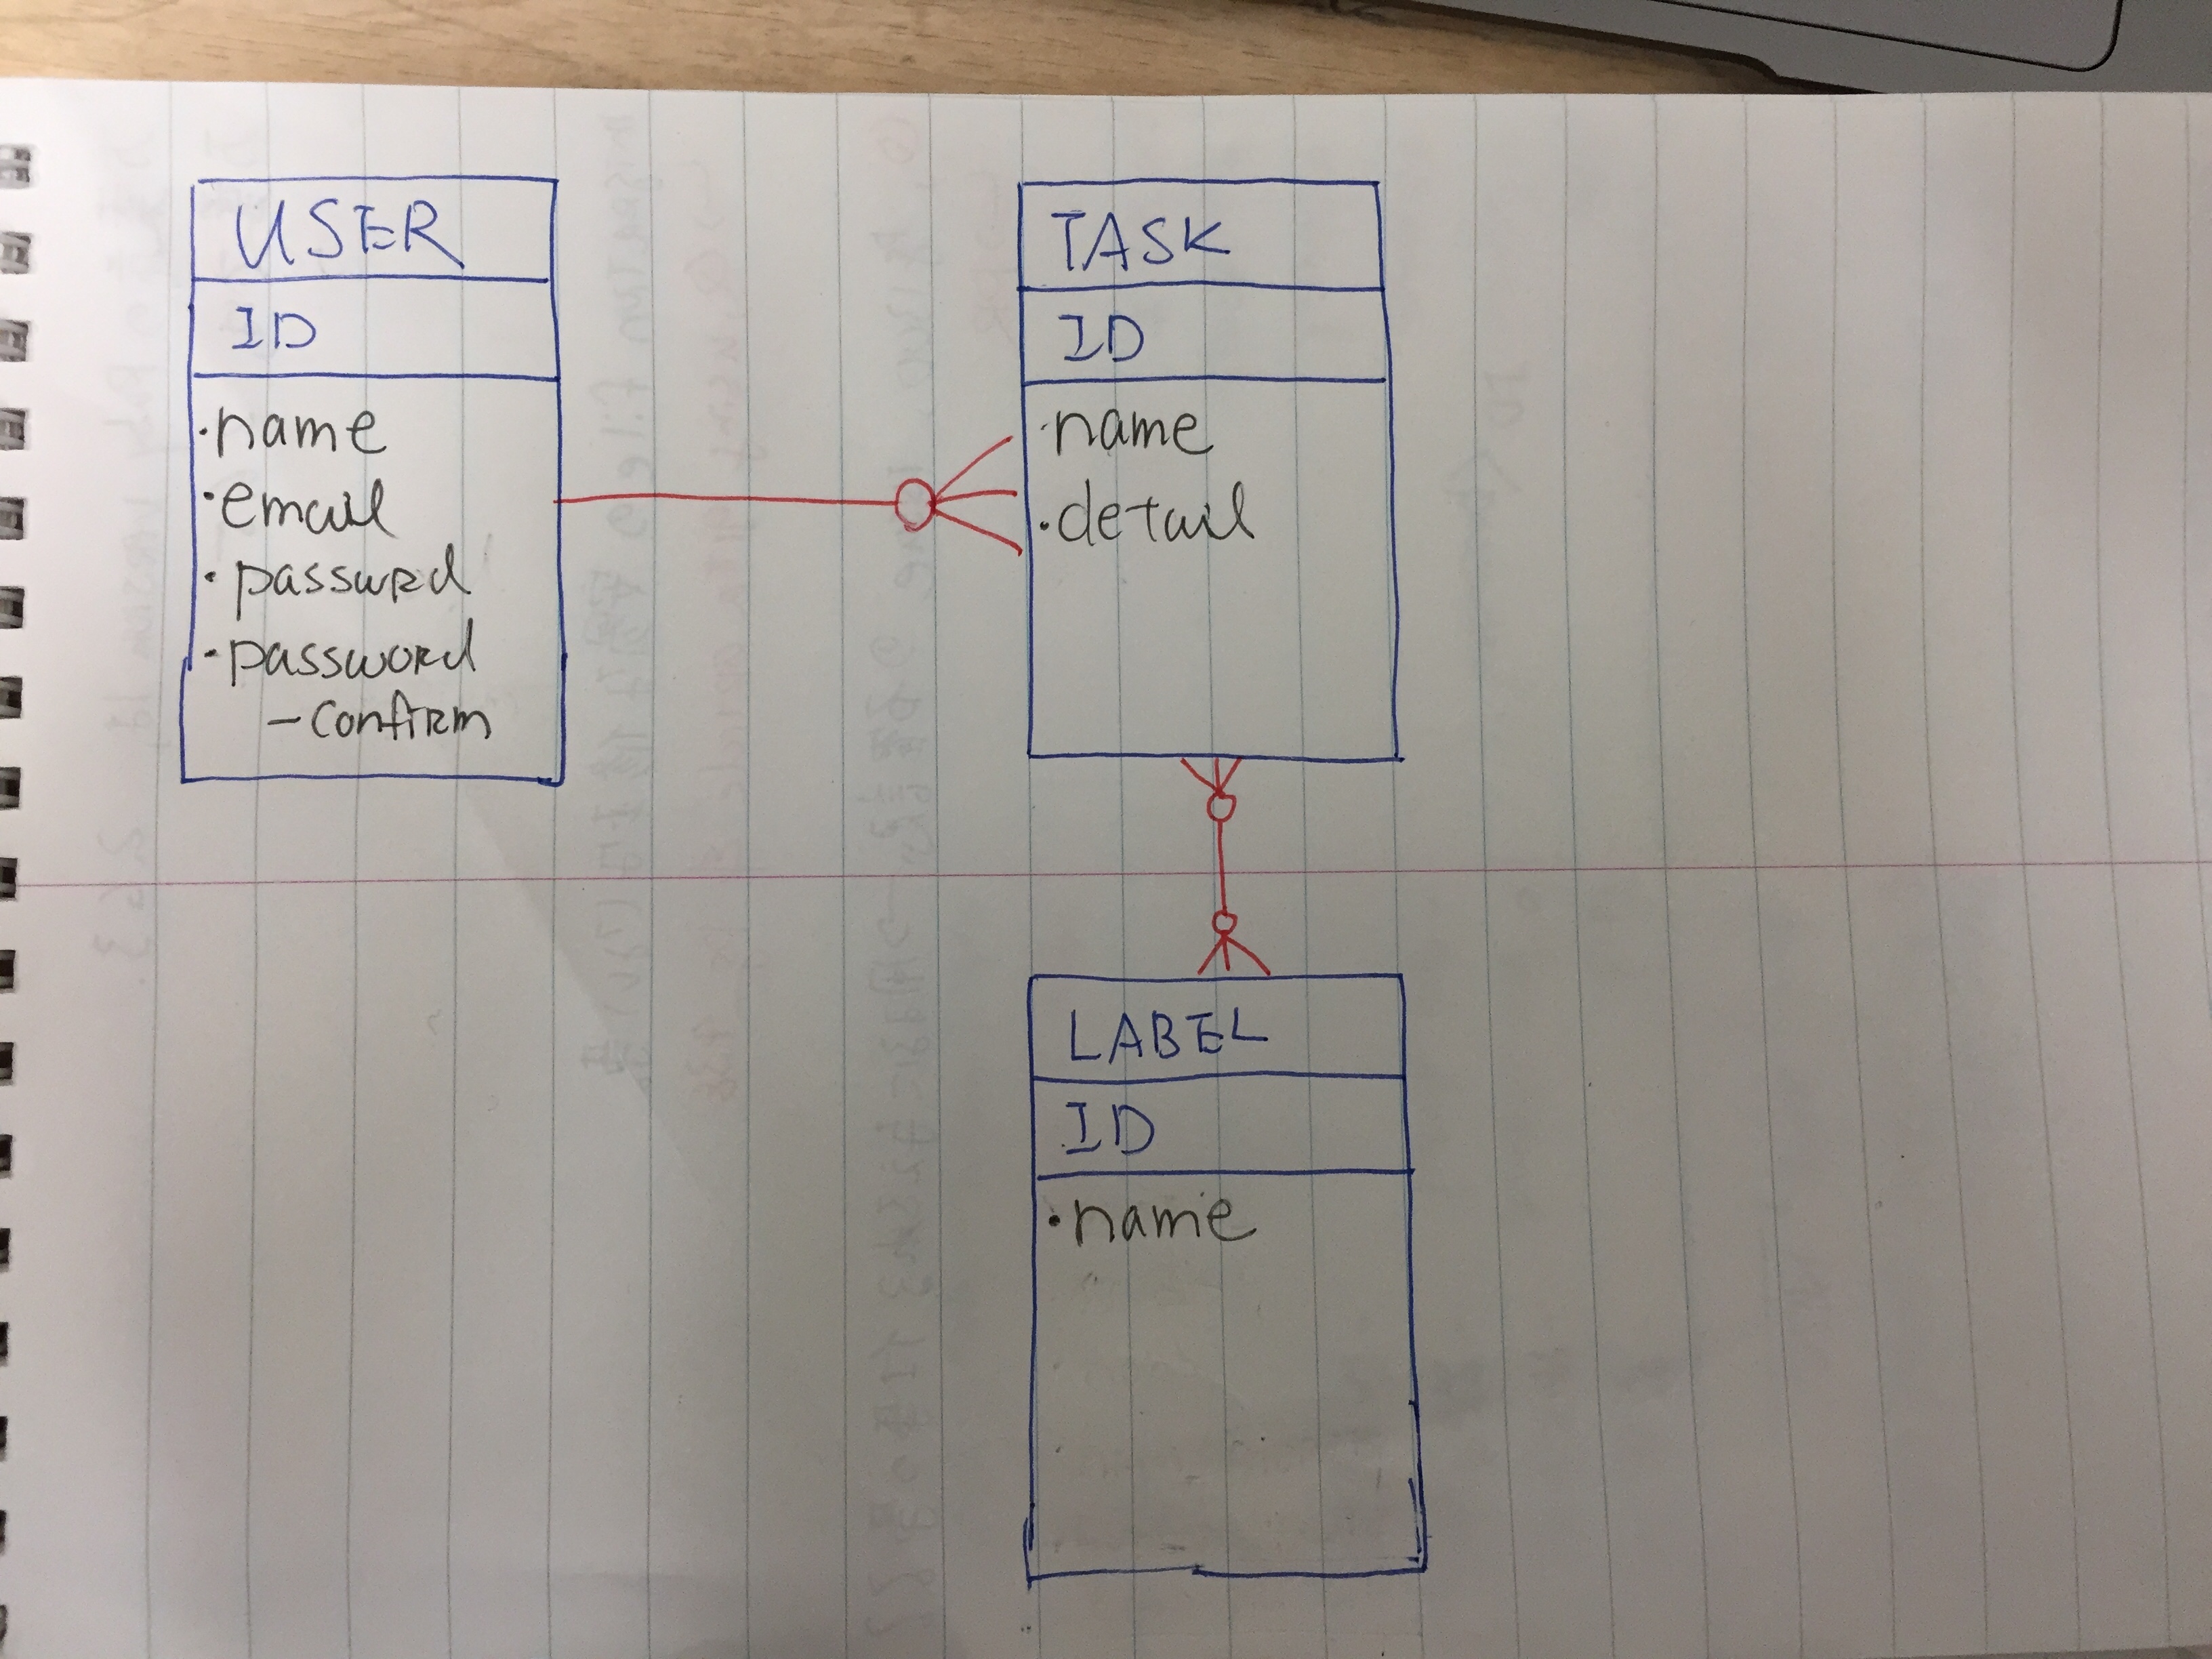 USER
ID
·name
·email
·passwrd
·password
-confirm
TASK
ID
·name
·detail
LABEL
ID
·name